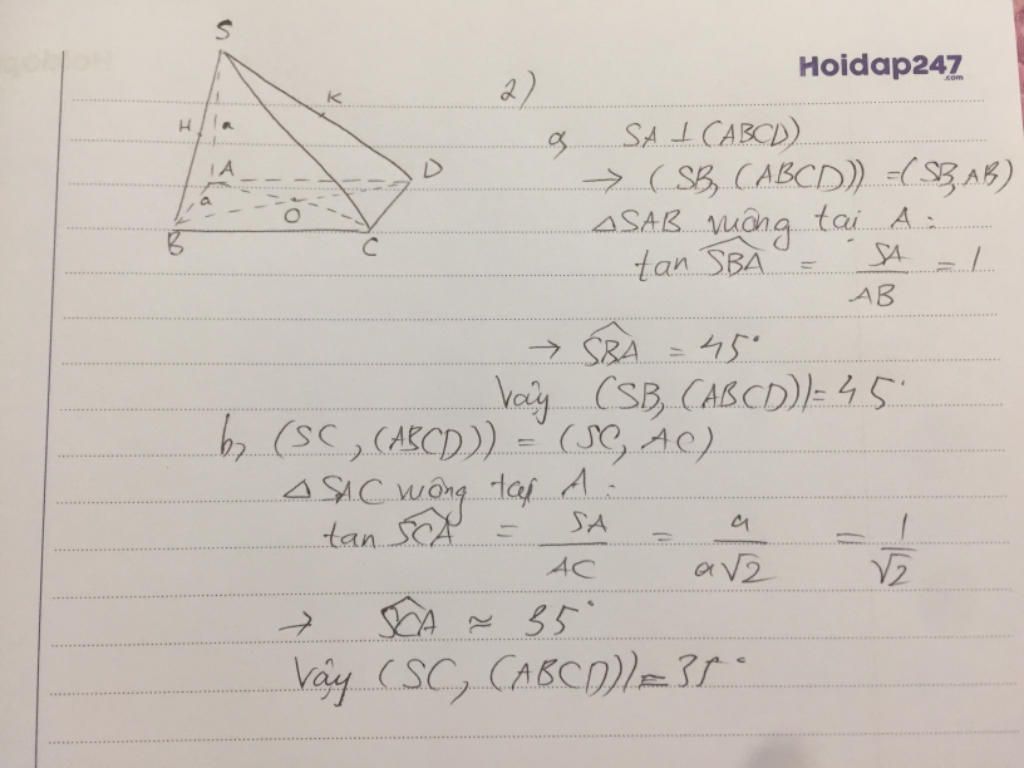 Hoidap247
.com
S
K
H
a
A
D
a
O
B
C
2)
a, SA ⊥ (ABCD)
→ (SB, (ABCD)) = (SB, AB)
△SAB vuông tại A:
tan SBA = SA/AB = 1
→ SBA = 45°
Vậy (SB, (ABCD)) = 45°
b, (SC, (ABCD)) = (SC, AC)
△SAC vuông tại A:
tan SCA = SA/AC = a/a√2 = 1/√2
→ SCA ≈ 35°
Vậy (SC, (ABCD)) = 35°